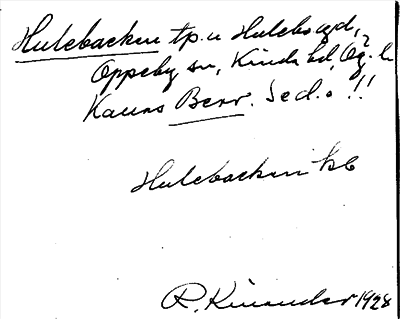 Hulebacken tp. u Hulebo gd,
Oppeby sn, Kinda hd, Ög. l.
Kallas Berr. Sed.o !!
Hulebacken kb
R. Kinander 1928